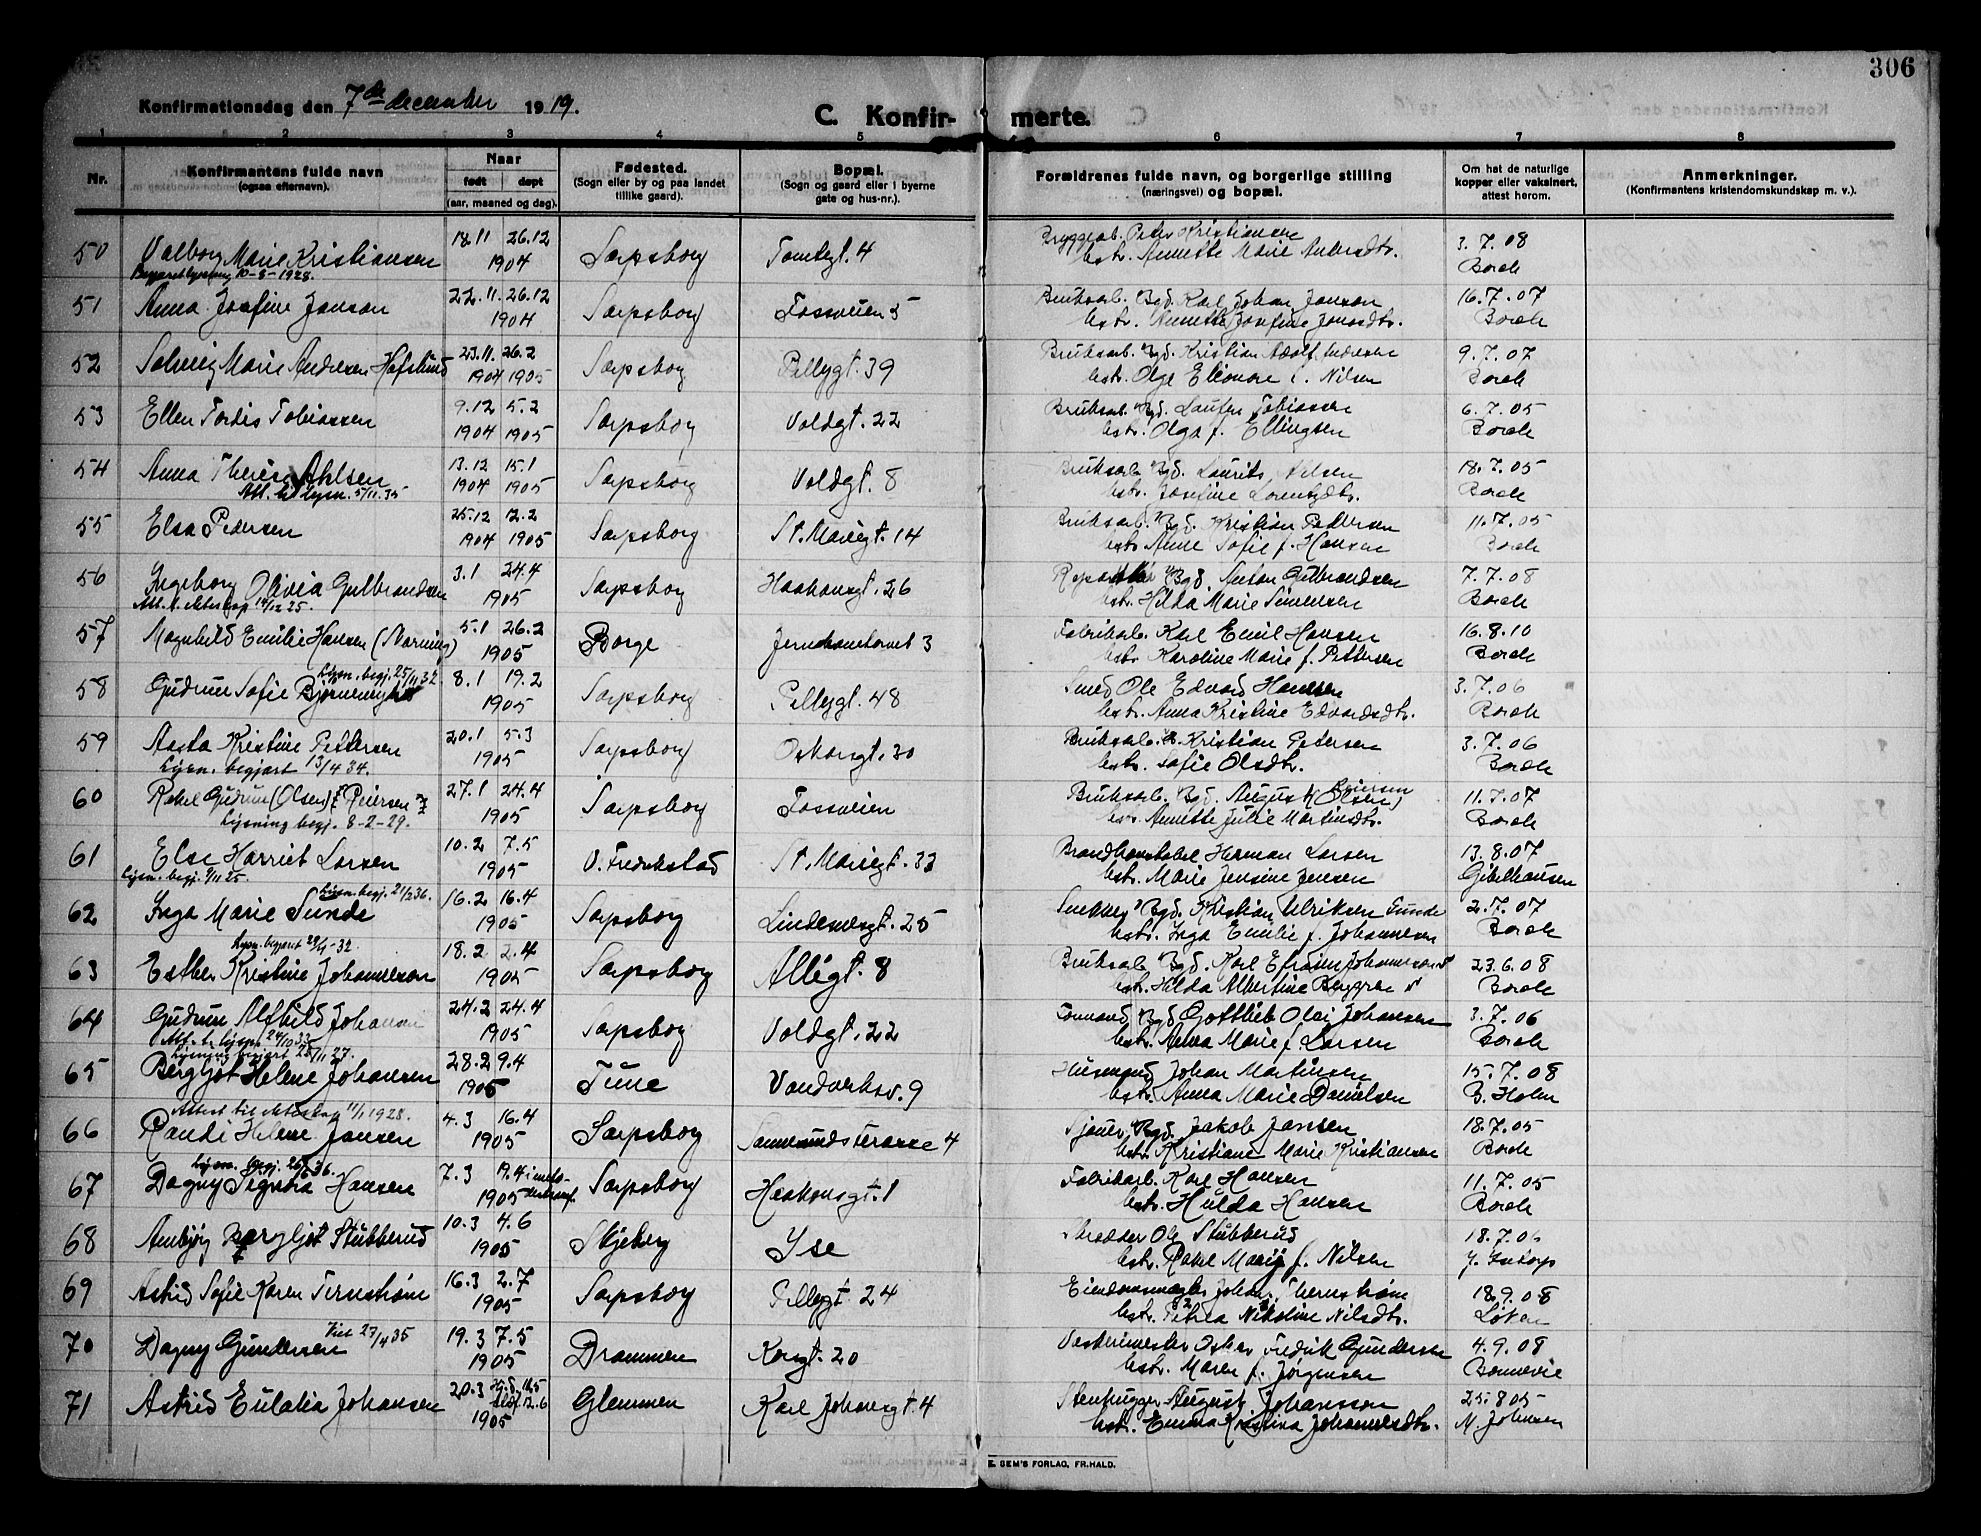 306
Konfirmationsdag den 7de december 1919.
C. Konfir- merte.
1 2 3 4 5 6 7 8
Nr.
Konfirmantens fulde navn
(ogsaa efternavn).
Naar
født døpt
(aar, maaned og dag).
Fødested.
(Sogn eller by og paa landet
tillike gaard).
Bopæl.
(Sogn og gaard eller i byerne
gate og hus-nr.).
Forældrenes fulde navn, og borgerlige stilling
(næringsvei) og bopæl.
Om hat de naturlige
kopper eller vaksinert,
attest herom.
Anmerkninger.
(Konfirmantens kristendomskundskap m. v.).
50 Valborg Marie Kristiansen 18.11 26.12 Sarpsborg Tomtegt. 4 Bryggearb. Peter Kristiansen 3.7.08
Begjært lysning 10-8-1928. 1904 hstr. Annette Marie Andersdtr. Borch
51 Anna Josefine Jansen 22.11. 26.12 Sarpsborg Fossveien 5 Bruksarb. Bgd. Karl Johan Jansen 16.7.07
1904 hstr. Annette Josefine Jonasdtr. Borch
52 Solveig Marie Andresen Hafslund 23.11. 26.2 Sarpsborg Pellygt. 39 Bruksarb. Bgd. Kristian Adolf Andresen 9.7.07
1904 1905 hstr. Olga Eleonore f. Nilsen Borch
53 Ellen Tordis Tobiassen 9.12 5.2 Sarpsborg Voldgt. 22 Bruksarb. Bgd. Laurits Tobiassen 6.7.05
1904 1905 hstr. Olga f. Ellingsen Borch
54 Anna Therese Ahlsen 13.12 15.1 Sarpsborg Voldgt. 8 Bruksarb. Bgd. Laurits Nilsen 18.7.05
Att. til lysn. 5/11.35 1904 1905 hstr. Josefine Lorentzdtr. Borch
55 Elsa Pedersen 25.12 12.2 Sarpsborg St. Mariegt. 14 Bruksarb. Bgd. Kristian Pedersen 11.7.05
1904 1905 hstr. Anne Sofie f. Hansen Borch
56 Ingeborg Olivia Gulbrandsen 3.1 24.4 Sarpsborg Haakonsgt. 26 Bgd. Anton Gulbrandsen 7.7.08
Att. t. ekteskap 14/12 25. 1905 hstr. Hilda Marie Simensen Borch
57 Magnhild Emilie Hansen (Narning) 5.1 26.2 Borge Jernbanetorvet 3 Fabrikarb. Karl Emil Hansen 16.8.10
1905 hstr. Karoline Marie f. Pettersen Borch
Lysn. begj. 25/11 32
58 Gudrun Sofie 8.1 19.2 Sarpsborg Pellygt. 48 Smed Ole Edvard Hansen 3.7.06
1905 hstr. Anna Kristine Edvardsdtr. Borch
59 Aasta Kristine Pettersen 20.1 5.3 Sarpsborg Oskarsgt. 30 Bruksarb. Kristian Petersen 3.7.06
Lysn. begjært 13/4 34. 1905 hstr. Sofie Olsdtr. Borch
60 Rakel Gudrun (Olsen) Reiersen 27.1 24.4 Sarpsborg Fossveien Bruksarb. Bgd. August (Olsen) Reiersen 11.7.07
Lysning begj. 8-2-29. 1905 hstr. Annette Julie Martinsdtr. Borch
61 Else Harriet Larsen 10.2 7.5 V. Fredrikstad St. Mariegt. 33 Brandkonstabel Herman Larsen 13.8.07
Lysn. begj. 9/11 25. 1905 hstr. Marie Jensine Jensen Gibelhausen
Lysn. begj. 21/2 36.
62 Inga Marie Sunde 16.2 16.4 Sarpsborg Lindemansgt. 25 Snekker Bgd. Kristian Ulriksen Sunde 2.7.07
1905 hstr. Inga Emilie f. Johannesen Borch
Lysn. begjært 29/4-32
63 Esther Kristine Johannesen 18.2 2.4 Sarpsborg Allégt. 8 Bruksarb. Bgd. Karl Efraim Johannesen 23.6.08
1905 hstr. Hilda Albertine Berggren Borch
64 Gudrun Alfhild Johansen 24.2 24.4 Sarpsborg Voldgt. 22 Formand Bgd. Gottlieb Olaj Johansen 3.7.06
Att. t. lysn. 24/10 33 1905 hstr. Anna Marie f. Larsen Borch
Lysning begjært 28/11 27.
65 Bergljot Helene Johansen 28.2 9.4 Tune Vandverksv. 9 Husmand Johan Martinsen 15.7.08
1905 hstr. Anna Marie Danielsen B. Holm
Attest til ekteskap 11/1 1928.
66 Randi Helene Jansen 4.3 16.4 Sarpsborg Sannesundsterasse 4 Sjauer Bgd. Jakob Jansen 18.7.05
1905 hstr. Kristiane Marie Kristiansen Borch
Lysn. begj. 26/6 36.
67 Dagny Signora Hansen 7.3 19.4 i metodistsamf. Sarpsborg Haakonsgt. 1 Fabrikarb. Karl Hansen 11.7.05
1905 hstr. Hulda Hansen Borch
68 Annbjørg Bergljot Stubberud 10.3 4.6 Skjeberg Ise Skrædder Ole Stubberud 18.7.06
1905 hstr. Rakel Marie f. Nilsen
69 Astrid Sofie Karen Ternstrøm 16.3 2.7 Sarpsborg Pellygt. 24 Eiendomsmægler Johan Thernstrøm 18.9.08
1905 hstr. Petrea Nikoline Nilsdtr. Løken
Viet 27/4 35
70 Dagny Gundersen 19.3 7.5 Drammen Kongt. 20 Værkmester Oskar Fredrik Gundersen 4.9.08
1905 hstr. Maren f. Jørgensen Bonnevie
71 Astrid Eulalia Johansen 20.3 Hj.d. 12.5 Glemmen Karl Johansgt. 4 Stenhugger August Johansson 25.8.05
1905 stadf. 12.6 hstr. Emma Kristina Johannesdtr. M. Johnsen
E. SEM'S FORLAG, FR.HALD.